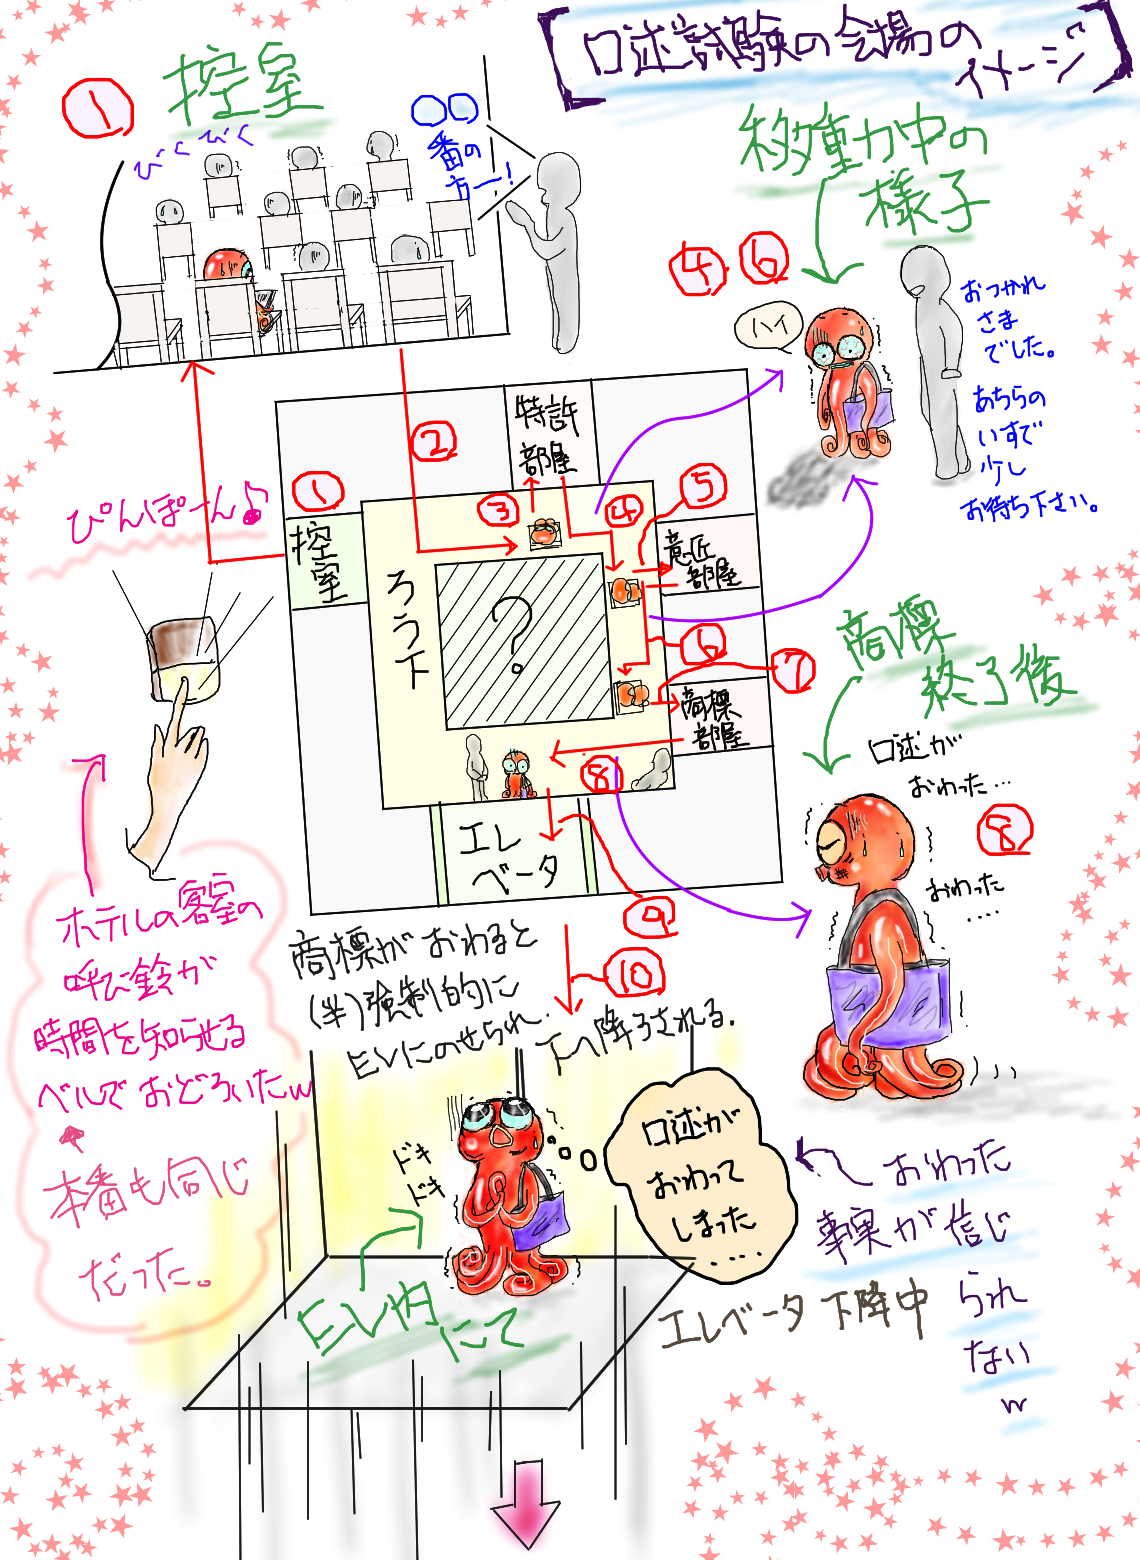 口述試験の会場の
イメージ
①
控室
びくびく
〇〇
番の
方ー!
移動中の
様子
④・⑥
ハイ
おつかれ
さま
でした。
あちらの
いすで
少し
お待ち下さい。
ぴんぽーん♪
①
②
③
④
⑤
⑥
⑦
⑧
⑨
⑩
控室
特許
部屋
意匠
部屋
商標
部屋
ろう下
?
エレ
ベータ
商標
終了後
口述が
おわった…
⑧
おわった
‥‥
ホテルの客室の
呼び鈴が
時間を知らせる
ベルでおどろいたw
本番も同じ
だった。
商標がおわると
(半)強制的に
ELにのせられ、
下へ降ろされる。
ドキ
ドキ
口述が
おわって
しまった
…
おわった
事実が信じ
られ
ない
w
EL内
にて
エレベータ下降中